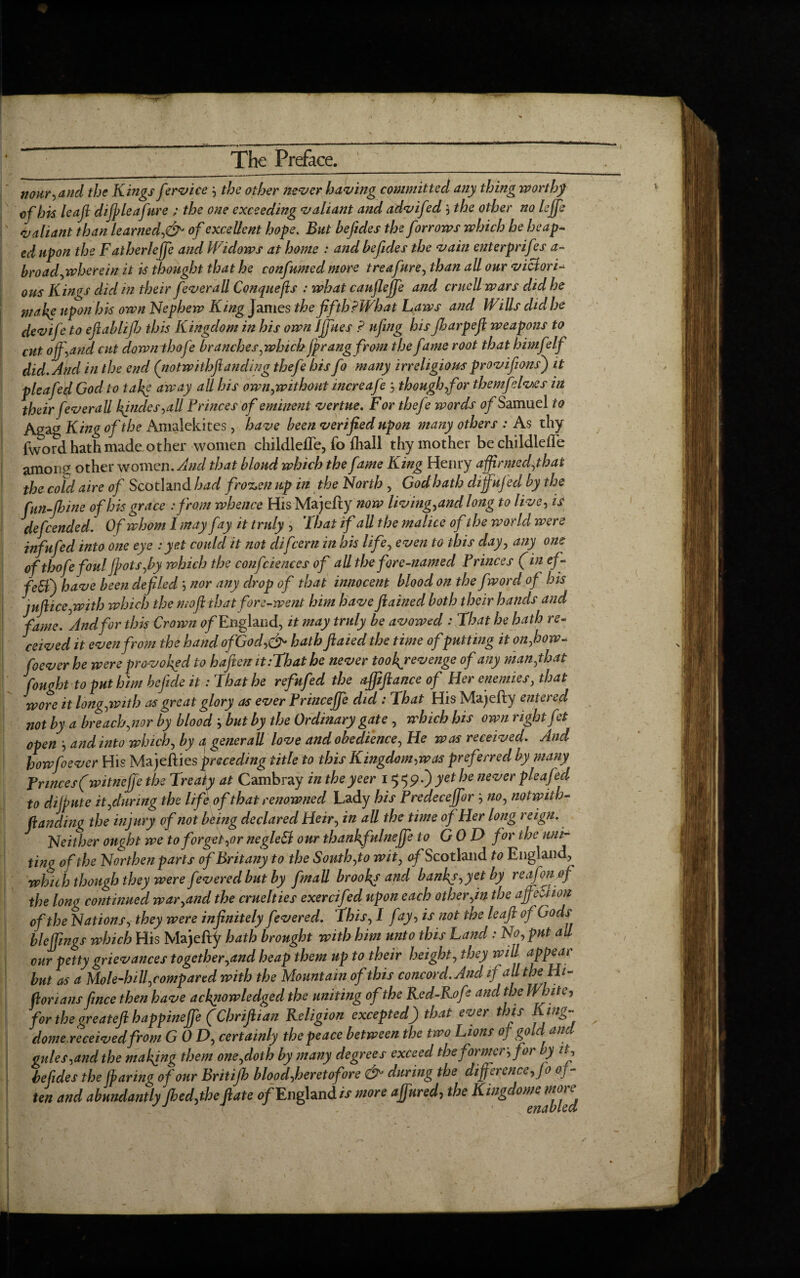 The Preface.
nour, and the Kings ſervice ; the other never having committed any thing worthy
of his leaſt diſpleaſure : the one exceeding valiant and adviſed ; the other no leſſe
valiant than learned, & of excellent hope. But beſides the ſorrows which he heap-
ed upon the Fatherleſſe and Widows at home : and beſides the vain enterpriſes a-
broad, wherein it is thought that he conſumed more treaſure, than all our victori-
ous Kings did in their ſeverall Conqueſts : what cauſleſſe and cruell wars did he
make upon his own Nephew King James the fifth? What Laws and Wills did he
deviſe to eſtabliſh this Kingdom in his own Iſſues ? uſing his ſharpeſt weapons to
cut off, and cut down thoſe branches, which ſprang from the ſame root that himſelf
did. And in the end (notwithſtanding theſe his ſo many irreligious proviſions) it
pleaſed God to take away all his own, without increaſe ; though, for themſelves in
their ſeverall kindes, all Princes of eminent vertue. For theſe words of Samuel to
Agag King of the Amalekites, have been verified upon many others : As thy
ſword hath made other women childleſſe, ſo ſhall thy mother be childleſſe
among other women. And that bloud which the ſame King Henry affirmed, that
the cold aire of Scotland had frozen up in the North, God hath diffuſed by the
ſun-ſhine of his grace : from whence His Majeſty now living, and long to live, is
deſcended. Of whom I may ſay it truly, That if all the malice of the world were
infuſed into one eye : yet could it not diſcern in his life, even to this day, any one
of thoſe foul ſpots, by which the conſciences of all the fore-named Princes (in ef-
fect) have been defiled ; nor any drop of that innocent blood on the ſword of his
juſtice, with which the moſt that fore-went him have ſtained both their hands and
fame. And for this Crown of England, it may truly be avowed : That he hath re-
ceived it even from the hand of God, & hath ſtaied the time of putting it on, how-
ſoever he were provoked to haſten it : That he never took revenge of any man, that
ſought to put him beſide it : That he refuſed the aſſiſtance of Her enemies, that
wore it long, with as great glory as ever Princeſſe did : That His Majeſty entered
not by a breach, nor by blood ; but by the Ordinary gate, which his own right ſet
open ; and into which, by a generall love and obedience, He was received. And
howſoever His Majeſties preceding title to this Kingdom, was preferred by many
Princes (witneſſe the Treaty at Cambray in the yeer 1559.) yet he never pleaſed
to diſpute it, during the life of that renowned Lady his Predeceſſor ; no, notwith-
ſtanding the injury of not being declared Heir, in all the time of Her long reign.
Neither ought we to forget, or neglect our thankfulneſſe to G O D for the uni-
ting of the Northen parts of Britany to the South, to wit, of Scotland to England,
which though they were ſevered but by ſmall brooks and banks, yet by reaſon of
the long continued war, and the cruelties exerciſed upon each other, in the affection
of the Nations, they were infinitely ſevered. This, I ſay, is not the leaſt of Gods
bleſſings which His Majeſty hath brought with him unto this Land : No, put all
our petty grievances together, and heap them up to their height, they will appear
but as a Mole-hill, compared with the Mountain of this concord. And if all the Hi-
ſtorians ſince then have acknowledged the uniting of the Red-Roſe and the White,
for the greateſt happineſſe (Chriſtian Religion excepted) that ever this King-
dome received from G O D, certainly the peace between the two Lions of gold and
gules, and the making them one, doth by many degrees exceed the former ; for by it,
beſides the ſparing of our Britiſh blood, heretofore & during the difference, ſo of-
ten and abundantly ſhed, the ſtate of England is more aſſured, the Kingdome more
enabled